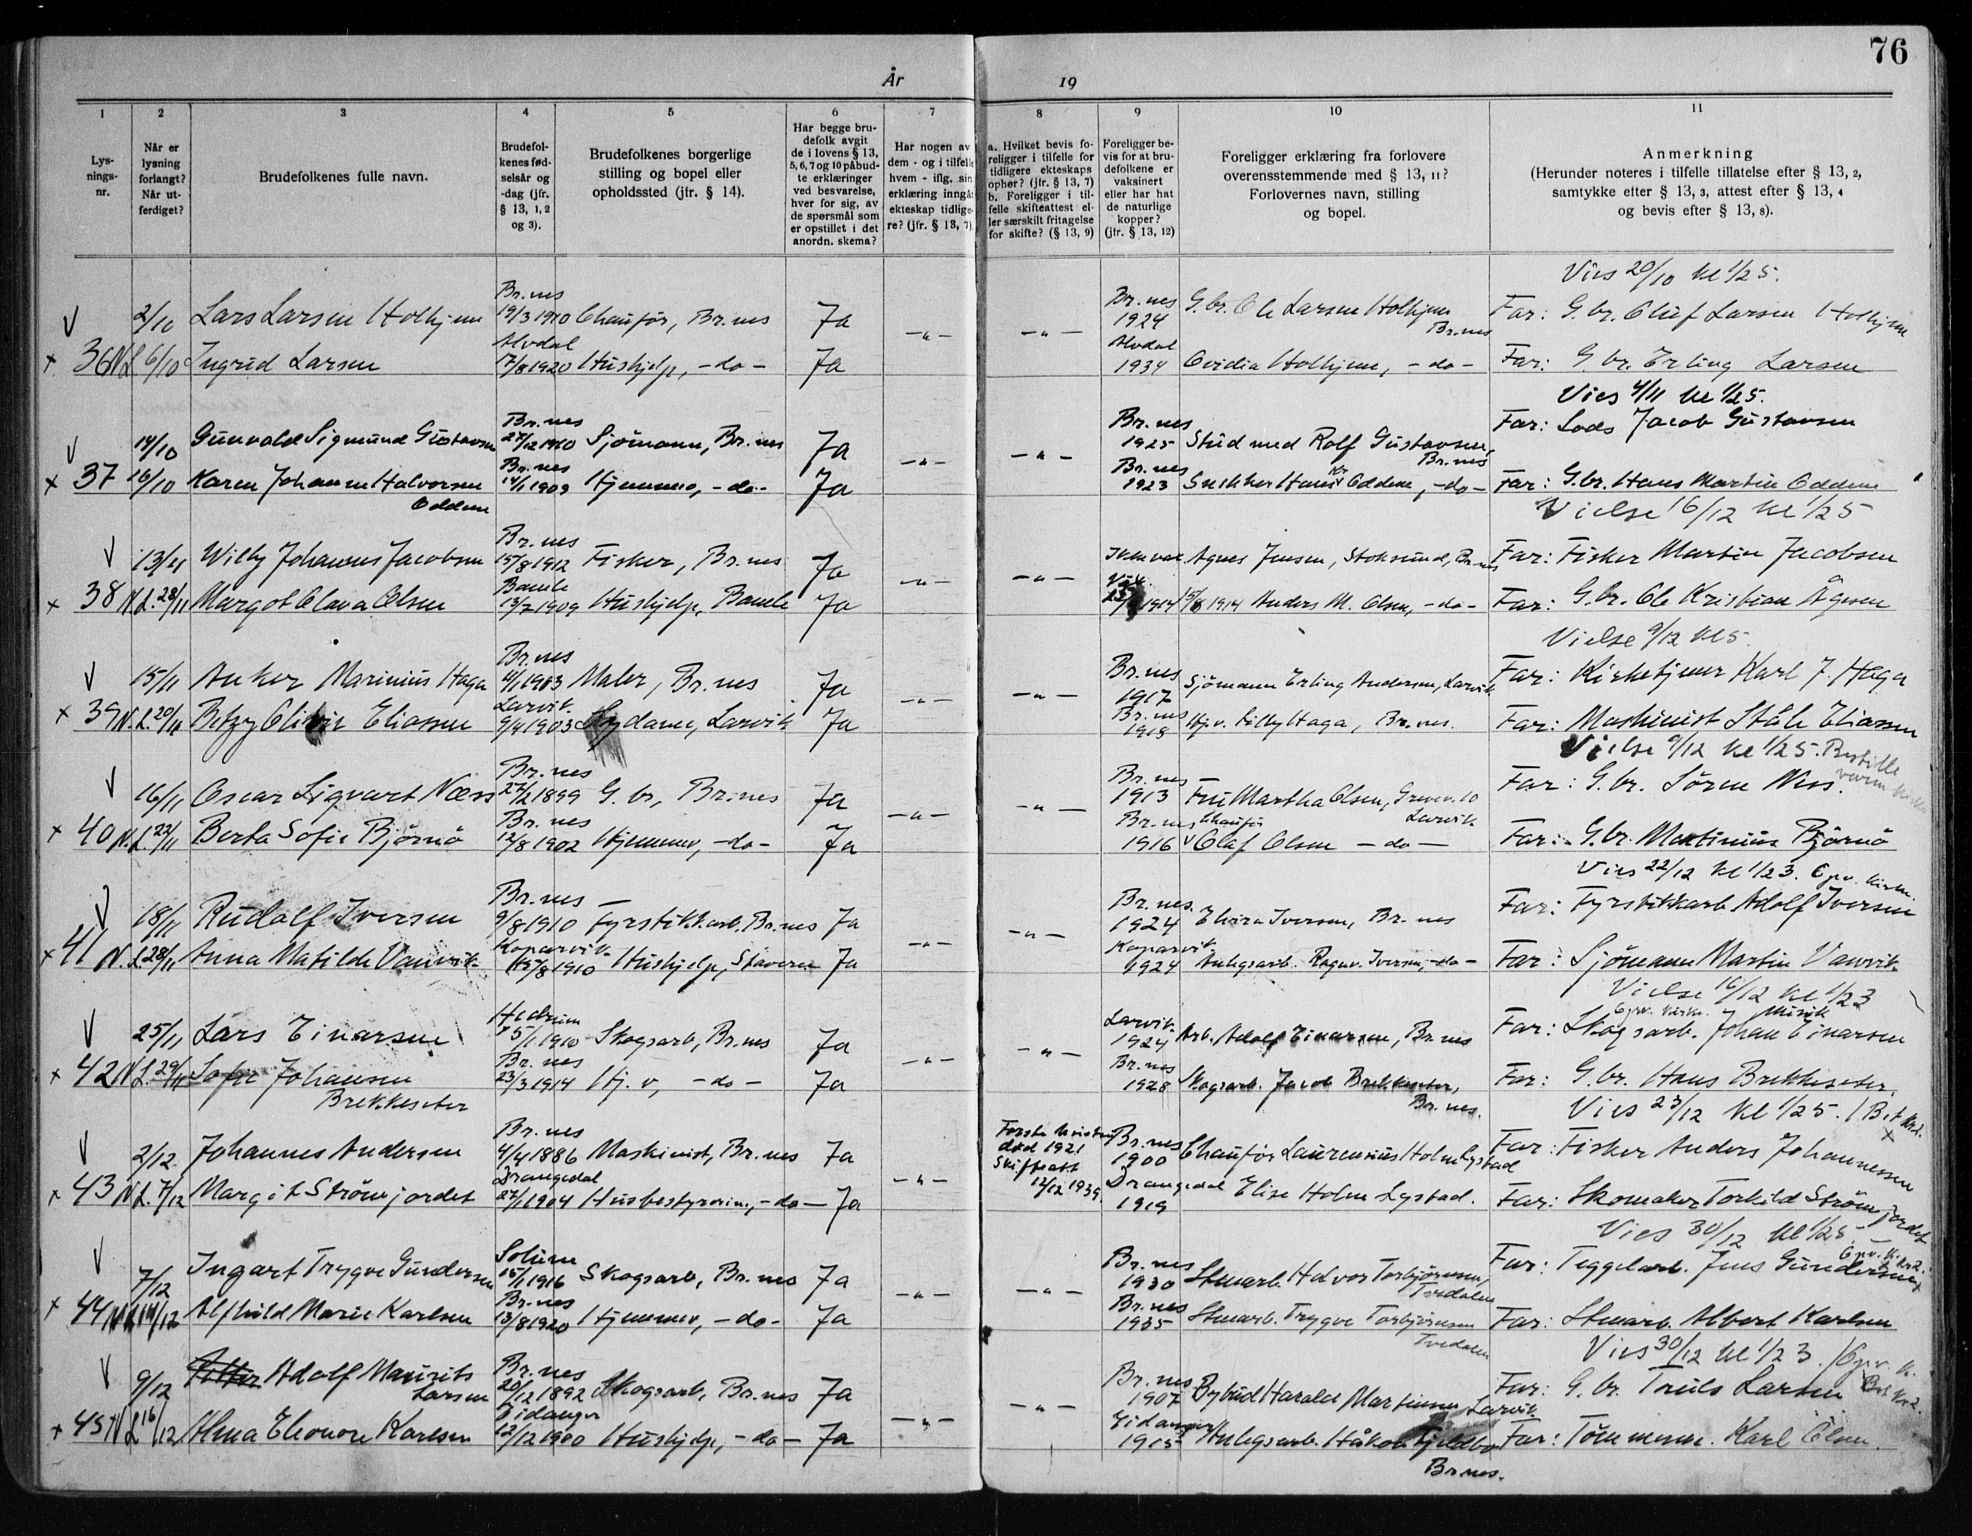 76
År 19
1 2 3 4 5 6 7 8 9 10 11
Lys-
nings-
nr.
Når er
lysning
forlangt?
Når ut-
ferdiget?
Brudefolkenes fulle navn.
Brudefol-
kenes fød-
selsår og
-dag (jfr.
§ 13, 1, 2
og 3).
Brudefolkenes borgerlige
stilling og bopel eller
opholdssted (jfr. § 14).
Har begge bru-
defolk avgit
de i lovens § 13,
5, 6, 7 og 10 påbud-
te erklæringer
ved besvarelse,
hver for sig, av
de spørsmål som
er opstillet i det
anordn. skema?
Har nogen av
dem - og i tilfelle
hvem - iflg. sin
erklæring inngått
ekteskap tidlige-
re? (jfr. § 13, 7)
a. Hvilket bevis fo-
religger i tilfelle for
tidligere ekteskaps
ophør? (jfr. § 13, 7)
b. Foreligger i til-
felle skifteattest el-
ler særskilt fritagelse
for skifte? (§ 13, 9)
Foreligger be-
vis for at bru-
defolkene er
vaksinert
eller har hat
de naturlige
kopper?
(jfr. § 13, 12)
Foreligger erklæring fra forlovere
overensstemmende med § 13, 11?
Forlovernes navn, stilling
og bopel.
Anmerkning
(Herunder noteres i tilfelle tillatelse efter § 13, 2,
samtykke efter § 13, 3, attest efter § 13, 4
og bevis efter § 13, 8).
Vies 20/10 kl 1/2 5.
Br.nes Br.nes
2/10 Lars Larsen Holhjem 19/3 1910 Chaufør, Br.nes Ja 1924 G.br. Ole Larsen Holhjem Br.nes Far: G. br. Oluf Larsen Holhjem
Alvdal -"- -"- Alvdal
x 36 N.L 6/10 Ingrid Larsen 17/8 1920 Hushjelp, -do- Ja 1934 Ovidia Holhjem, -do- Far: G. br. Erling Larsen
Vies 4/11 kl 1/2 5.
Br.nes Br.nes
14/10 Gunvald Sigmund Gustavsen 27/12 1910 Sjömann, Br.nes Ja 1925 Stud med Rolf Gustavsen, Br.nes Far: Lods Jacob Gustavsen
Br.nes -"- -"- Br.nes
x 37 16/10 Karen Johanne Halvorsen 14/1 1909 Hjemmev, -do- Ja 1923 Snekker Hans Kr Oddene, -do- Far: G.br. Hans Martin Oddene
Oddene
Vielse 16/12 kl 1/2 5
Br.nes
13/11 Willy Johannes Jacobsen 15/8 1912 Fisker, Br.nes Ja Agnes Jensen, Stoksund, Br.nes Far: Fisker Martin Jacobsen
Bamle -"- -"-
x 38 N.L. 28/11 Margot Olava Olsen 13/2 1909 Hushjelp, Bamle Ja 1914 Anders M. Olsen, -do- Far: G. br. Ole Kristian Ågesen
Vielse 9/12 kl 5
Br.nes Br.nes
15/11 Anker Marinius Haga 4/1 1903 Maler, Br.nes Ja 1917 Sjömann Erling Andersen, Larvik Far: Kirketjener Karl J Haga
Larvik -"- -"- Br.nes
x 39 N.L. 20/11 Betzy Olivie Eliassen 9/4 1903 Sydame, Larvik Ja 1918 Hj.v. Lilly Haga, Br.nes. Far: Maskinist Ståle Eliassen
Vielse 9/12 kl 1/2 5. Bestille
Br.nes Br.nes
16/11 Oscar Sigvart Næss 27/12 1899 G. br, Br.nes Ja 1913 Fru Martha Olsen, Larvik Far: G. br. Sören Ness.
Br.nes -"- -"- Br.nes Chaufør
x 40 N.L. 22/11 Berta Sofie Bjørnö 12/8 1902 Hjemmev, -do- Ja 1916 Olaf Olsen -do- Far: G.br. Martinius Bjørnö
Vies 22/12 kl 1/2 3. Opv. kirke.
Br.nes Br.nes.
18/11 Rudolf Iversen 9/8 1910 Fyrstikkarb. Br.nes Ja 1924 Elvira Iversen, Br. nes Far: Fyrstikkarb Adolf Iversen
Koparvik -"- -"- Koparvik
x 41 N.L 28/11 Anna Matilde Vanvik 1910 Hushjelp, Stavern Ja 1924 Anlegsarb. Ragnv. Iversen, -do- Far: Sjömann Martin Vanvik
Vielse 16/12 kl 1/2 3
Opv. kirke. Musik
Hedrum Larvik
25/11 Lars Einarsen 1910 Skogsarb, Br.nes Ja 1924 Arb. Adolf Einarsen, Br.nes Far: Skogsarb. Johan Einarsen
Br.nes -"- -"- Br.nes
x 42 N.L. 29/11 Sofie Johansen 23/3 1914 Hj. v, -do- Ja 1928 Skogsarb. Jacob Brekkeseter, Br.nes. Far: G.br. Hans Brekkeseter
Brekkeseter
Vies 23/12 kl 1/2 5.
Br.nes Første hustru død 1921 Br.nes
2/12. Johannes Andersen 4/4 1886 Maskinist, Br.nes Ja Skifteatt 12/12 1939. 1900 Chaufør Laurentius Holm Lystad Far: Fisker Anders Johannessen
Drangedal -"- Drangedal
x 43 N.L. 7/12 Margit Strömjordet 27/1 1904 Husbestyrerinne, -do- Ja 1919 Elise Holm Lystad. Far: Skomaker Torkild Strömjordet
Vies 30/12 kl 1/2 5
Solum Br.nes
7/12 Ingart Trygve Gundersen 15/1 1916 Skogsarb, Br.nes Ja 1930 Stenarb. Halvor Torbjörnsen, Tvedalen Far: Teggelarb. Jens Gundersen
Br.nes -"- -"- Br.nes
x 44 N.L 14/12 Alfhild Marie Karlsen 13/8 1920 Hjemmev, -do- Ja 1935 Stenarb. Trygve Torbjörnsen Tvedalen Far: Stenarb. Albert Karlsen
Vies 30/12 kl 1/2 3. Opv. k.
Br.nes Br.nes
9/12 Adolf Maurits Larsen 20/12 1892 Skogsarb, Br.nes Ja 1907 Bybud Harald Martinsen Larvik Far: G. br. Truls Larsen
Eidanger -"- -"- Eidanger
x 45 N.L 16/12 Alma Eleonore Karlsen 12/12 1900 Hushjelp, -do- Ja 1915 Anlegsarb. Håkon Fjeldbo Br.nes. Far: Tömmerm. Karl Olsen.